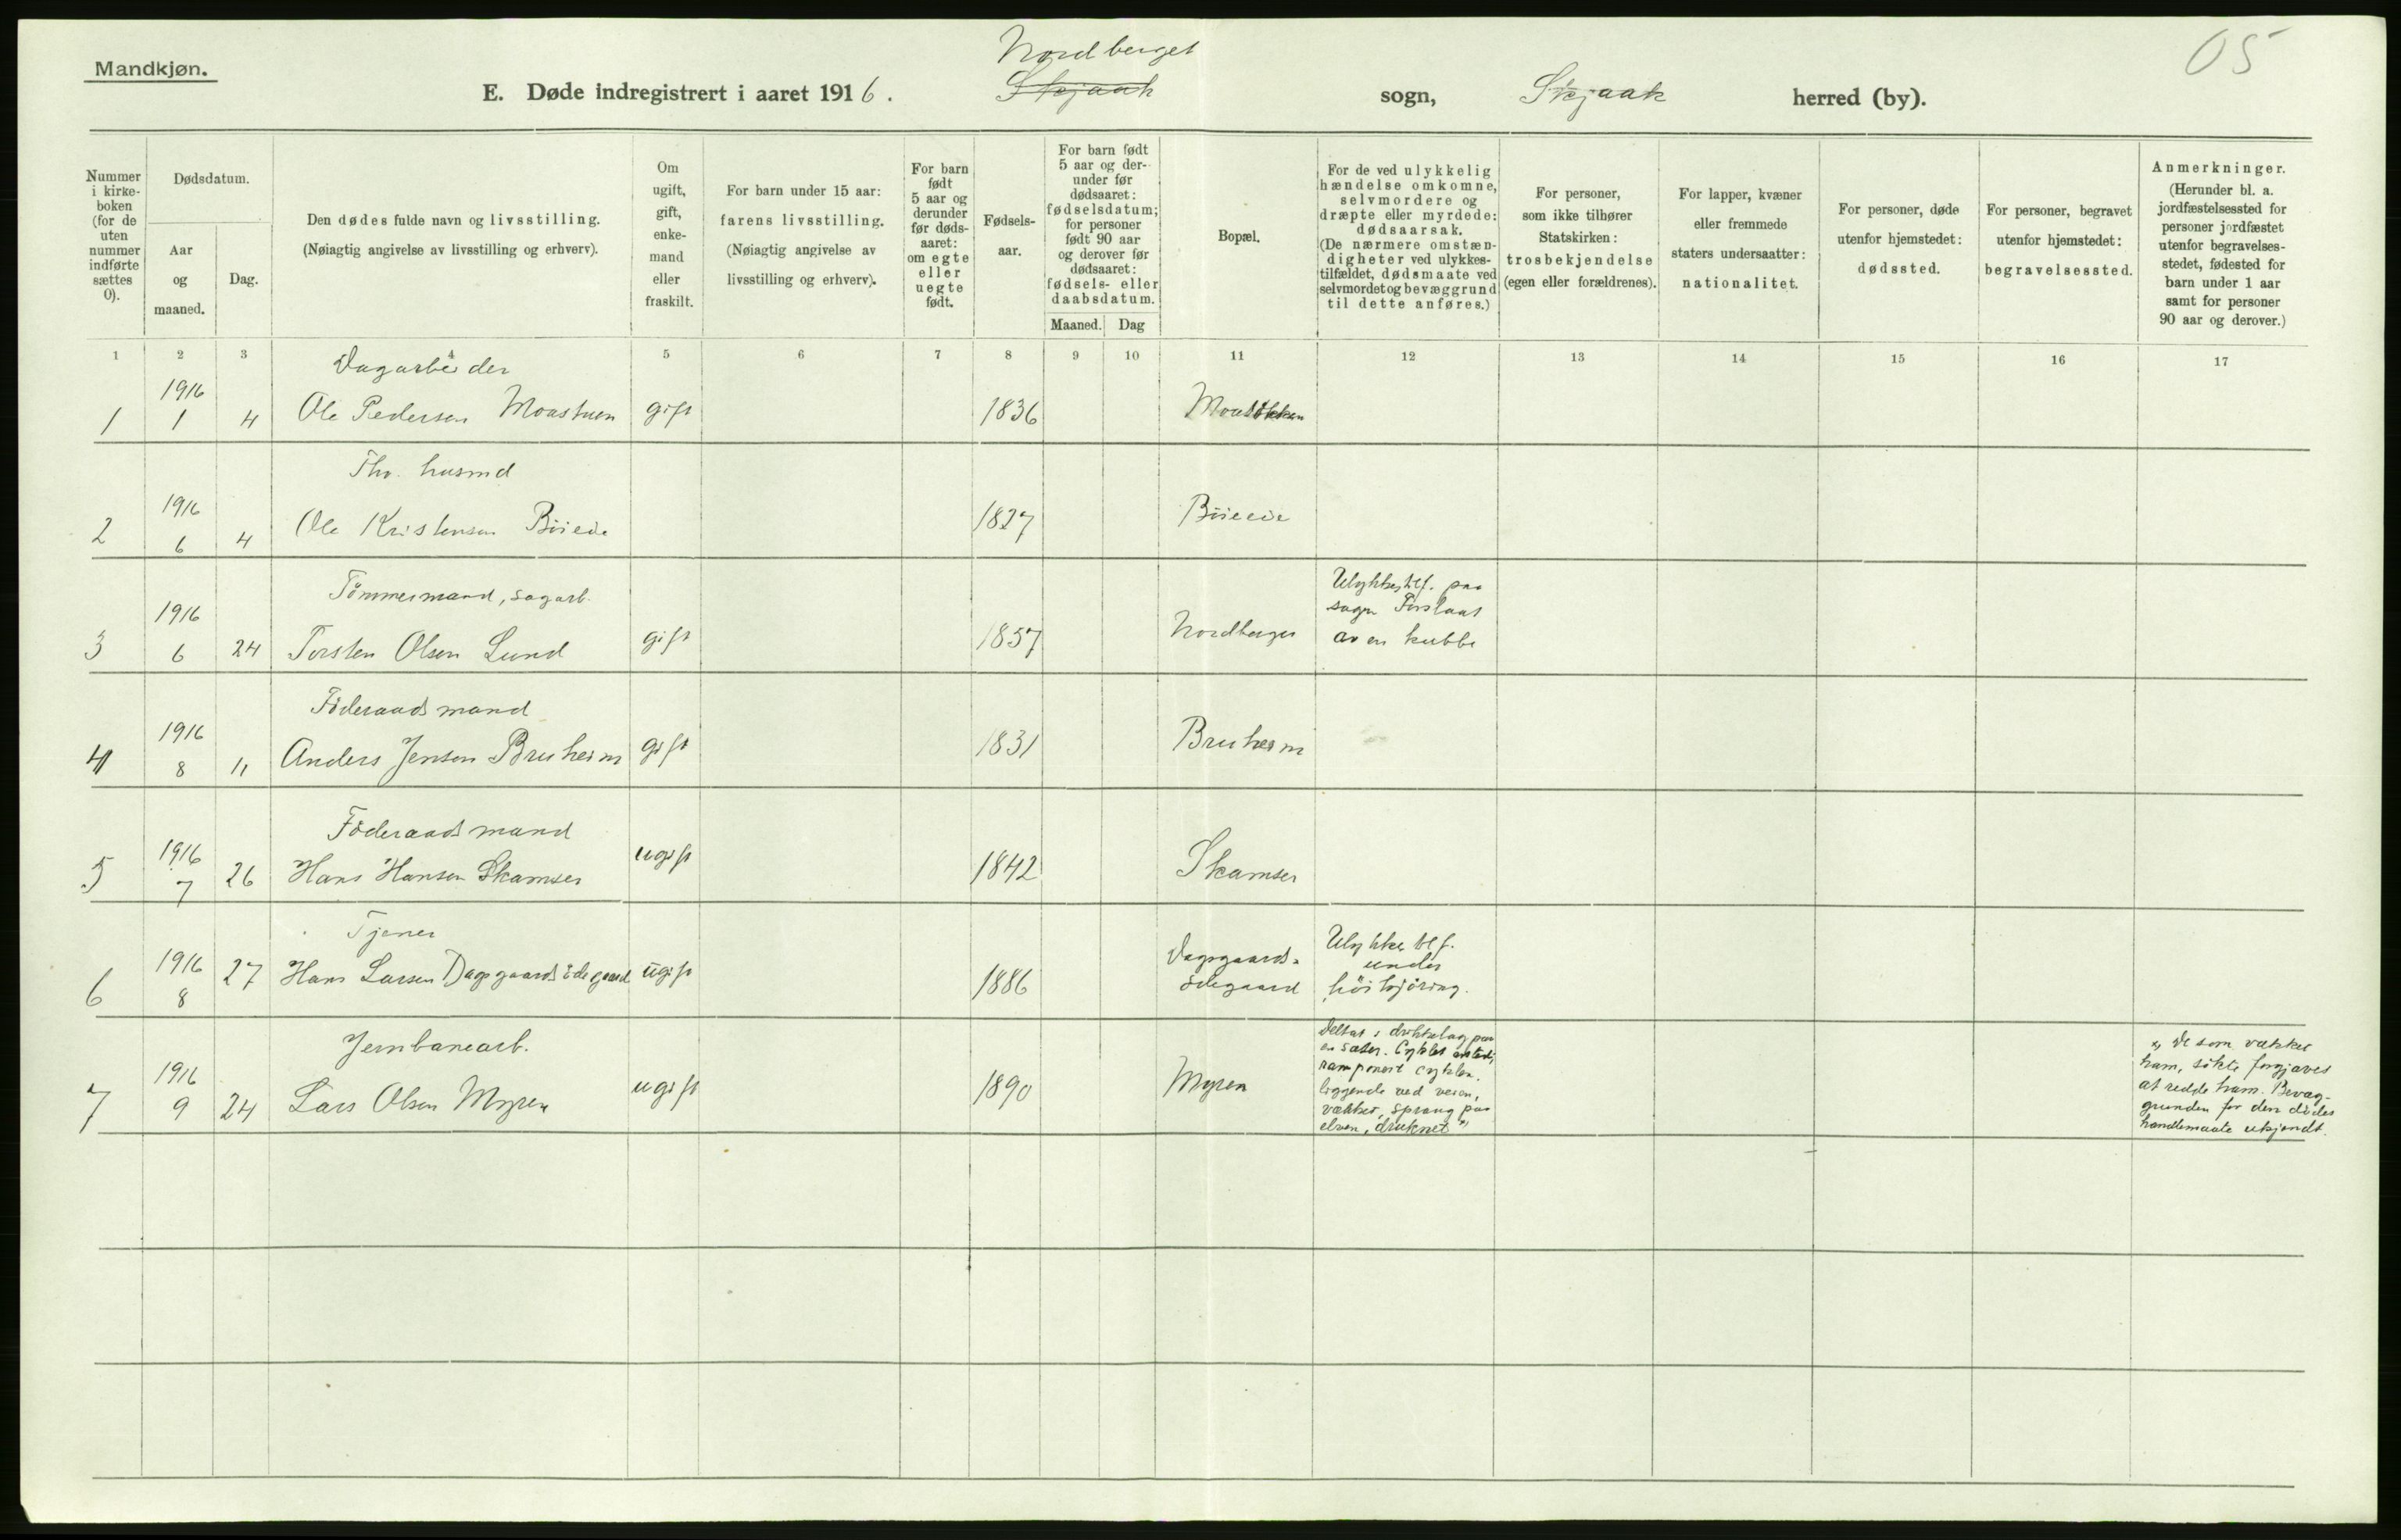 Mandkjøn.
Nordberget
05
E. Døde indregistrert i aaret 1916. Skjaak sogn, Skjaak herred (by).
Nummer i kirke-boken (for de uten nummer indførte sættes 0).
Dødsdatum.
Aar og maaned.
Dag.
Den dødes fulde navn og livsstilling.
(Nøiagtig angivelse av livsstilling og erhverv).
Om ugift, gift, enke-mand eller fraskilt.
For barn under 15 aar:
farens livsstilling.
(Nøiagtig angivelse av
livsstilling og erhverv).
For barn født 5 aar og derunder før døds-aaret: om egte eller uegte født.
Fødsels-aar.
For barn født 5 aar og der-under før dødsaaret: fødselsdatum; for personer født 90 aar og derover før dødsaaret: fødsels- eller daabsdatum.
Maaned. Dag
Bopæl.
For de ved ulykkelig hændelse omkomne, selvmordere og dræpte eller myrdede: dødsaarsak. (De nærmere omstæn-digheter ved ulykkes-tilfældet, dødsmaate ved selvmordet og bevæggrund til dette anføres.)
For personer, som ikke tilhører Statskirken: trosbekjendelse (egen eller forældrenes).
For lapper, kvæner eller fremmede staters undersaatter: nationalitet.
For personer, døde utenfor hjemstedet: dødssted.
For personer, begravet utenfor hjemstedet: begravelsessted.
Anmerkninger.
(Herunder bl. a. jordfæstelsessted for personer jordfæstet utenfor begravelses-stedet, fødested for barn under 1 aar samt for personer 90 aar og derover.)
1 2 3 4 5 6 7 8 9 10 11 12 13 14 15 16 17
Dagarbeider
1916
1 1 4 Ole Pedersen Moastuen gift 1836
Thv. husmd
1916
2 6 4 Ole Kristensen Böieeie 1827 Böieeie
Tömmermand, sagarb.
1916
3 6 24 Torsten Olsen Lund gift 1857 Nordberget
Ulykkestilf. paa
sagen Ihjelslaat
av en kubbe
Föderaadsmand
1916
4 8 11 Anders Jensen Bruheim gift 1831 Bruheim
Föderaadsmand
1916
5 7 26 Hans Hansen Skamser ugift 1842 Skamser
Tjener
1916
6 8 27 Hans Larsen Dagsgaardsödegaard ugift 1886
Dagsgaards-
ödegaard
Ulykkestilf.
under
höikjöring.
Jernbanearb.
1916
7 9 24 Lars Olsen Myren ugift 1890 Myren
Deltat i drikkelag paa
en sæter. Cyklet avsted,
ramponert cyklen,
liggende ved veien,
vækket, sprang paa
elven, druknet "
" De som vækket
ham, sökte forgjæves
at redde ham. Bevæg-
grunden for den dödes
handlemaate ukjendt.